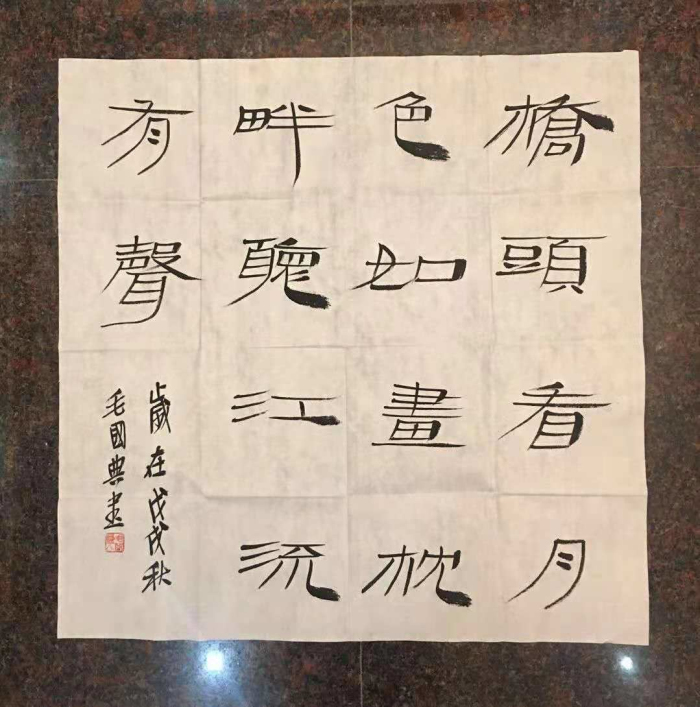 橋頭看月
色如畫枕
畔聽江流
有聲
歲在戊戌秋
毛國典書